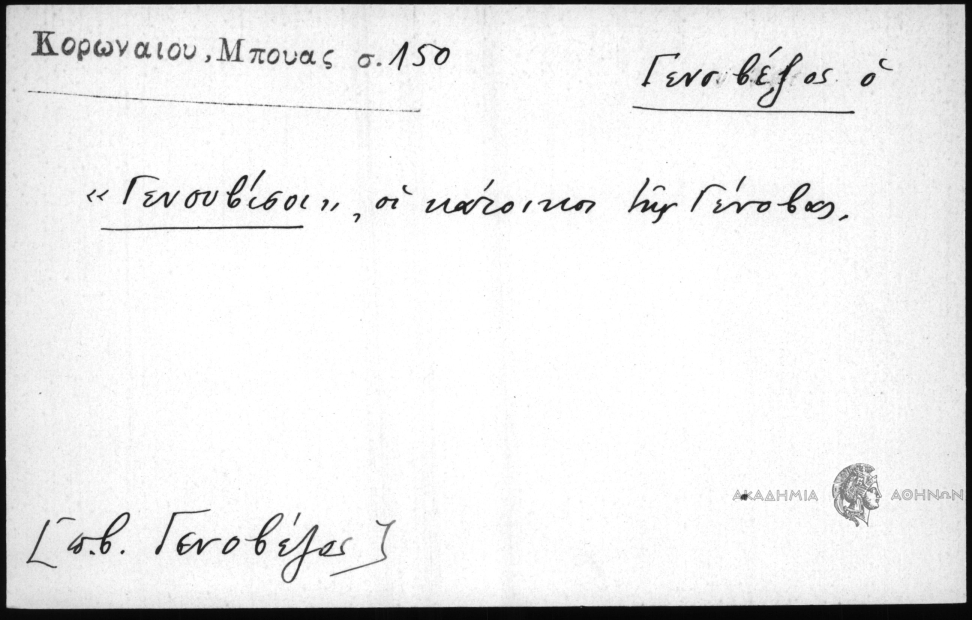 Κορωναιου, Μπουας σ. 150
Γενοβέζος ὁ
«Γενουβίσοι», οἱ κάτοικοι τῆς Γένοβας.
ΑΚΑΔΗΜΙΑ ΑΘΗΝΩΝ
[π.β. Γενοβέζος]